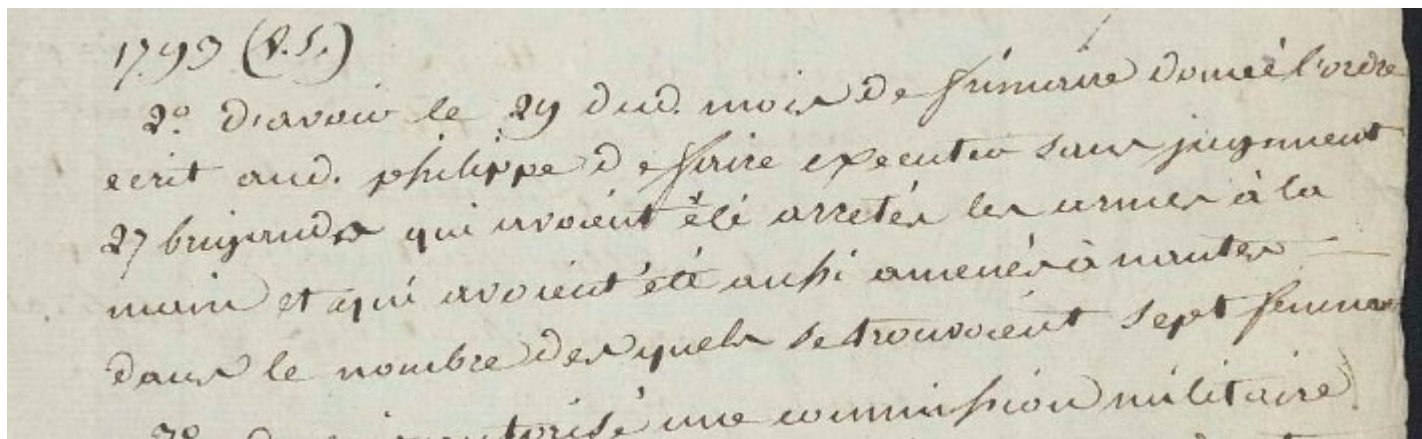 1793 (v.s.)
2.° D'avoir le 29 dud. mois De frimaire donné l'ordre
ecrit aud. philippe De faire executer sans jugement
27 brigands qui avoient été arretés les armes à la
main et qui avoient été aussi amenés à nantes
dans le nombre des quels se trouvoient sept femmes
3.° autorisé une commission militaire